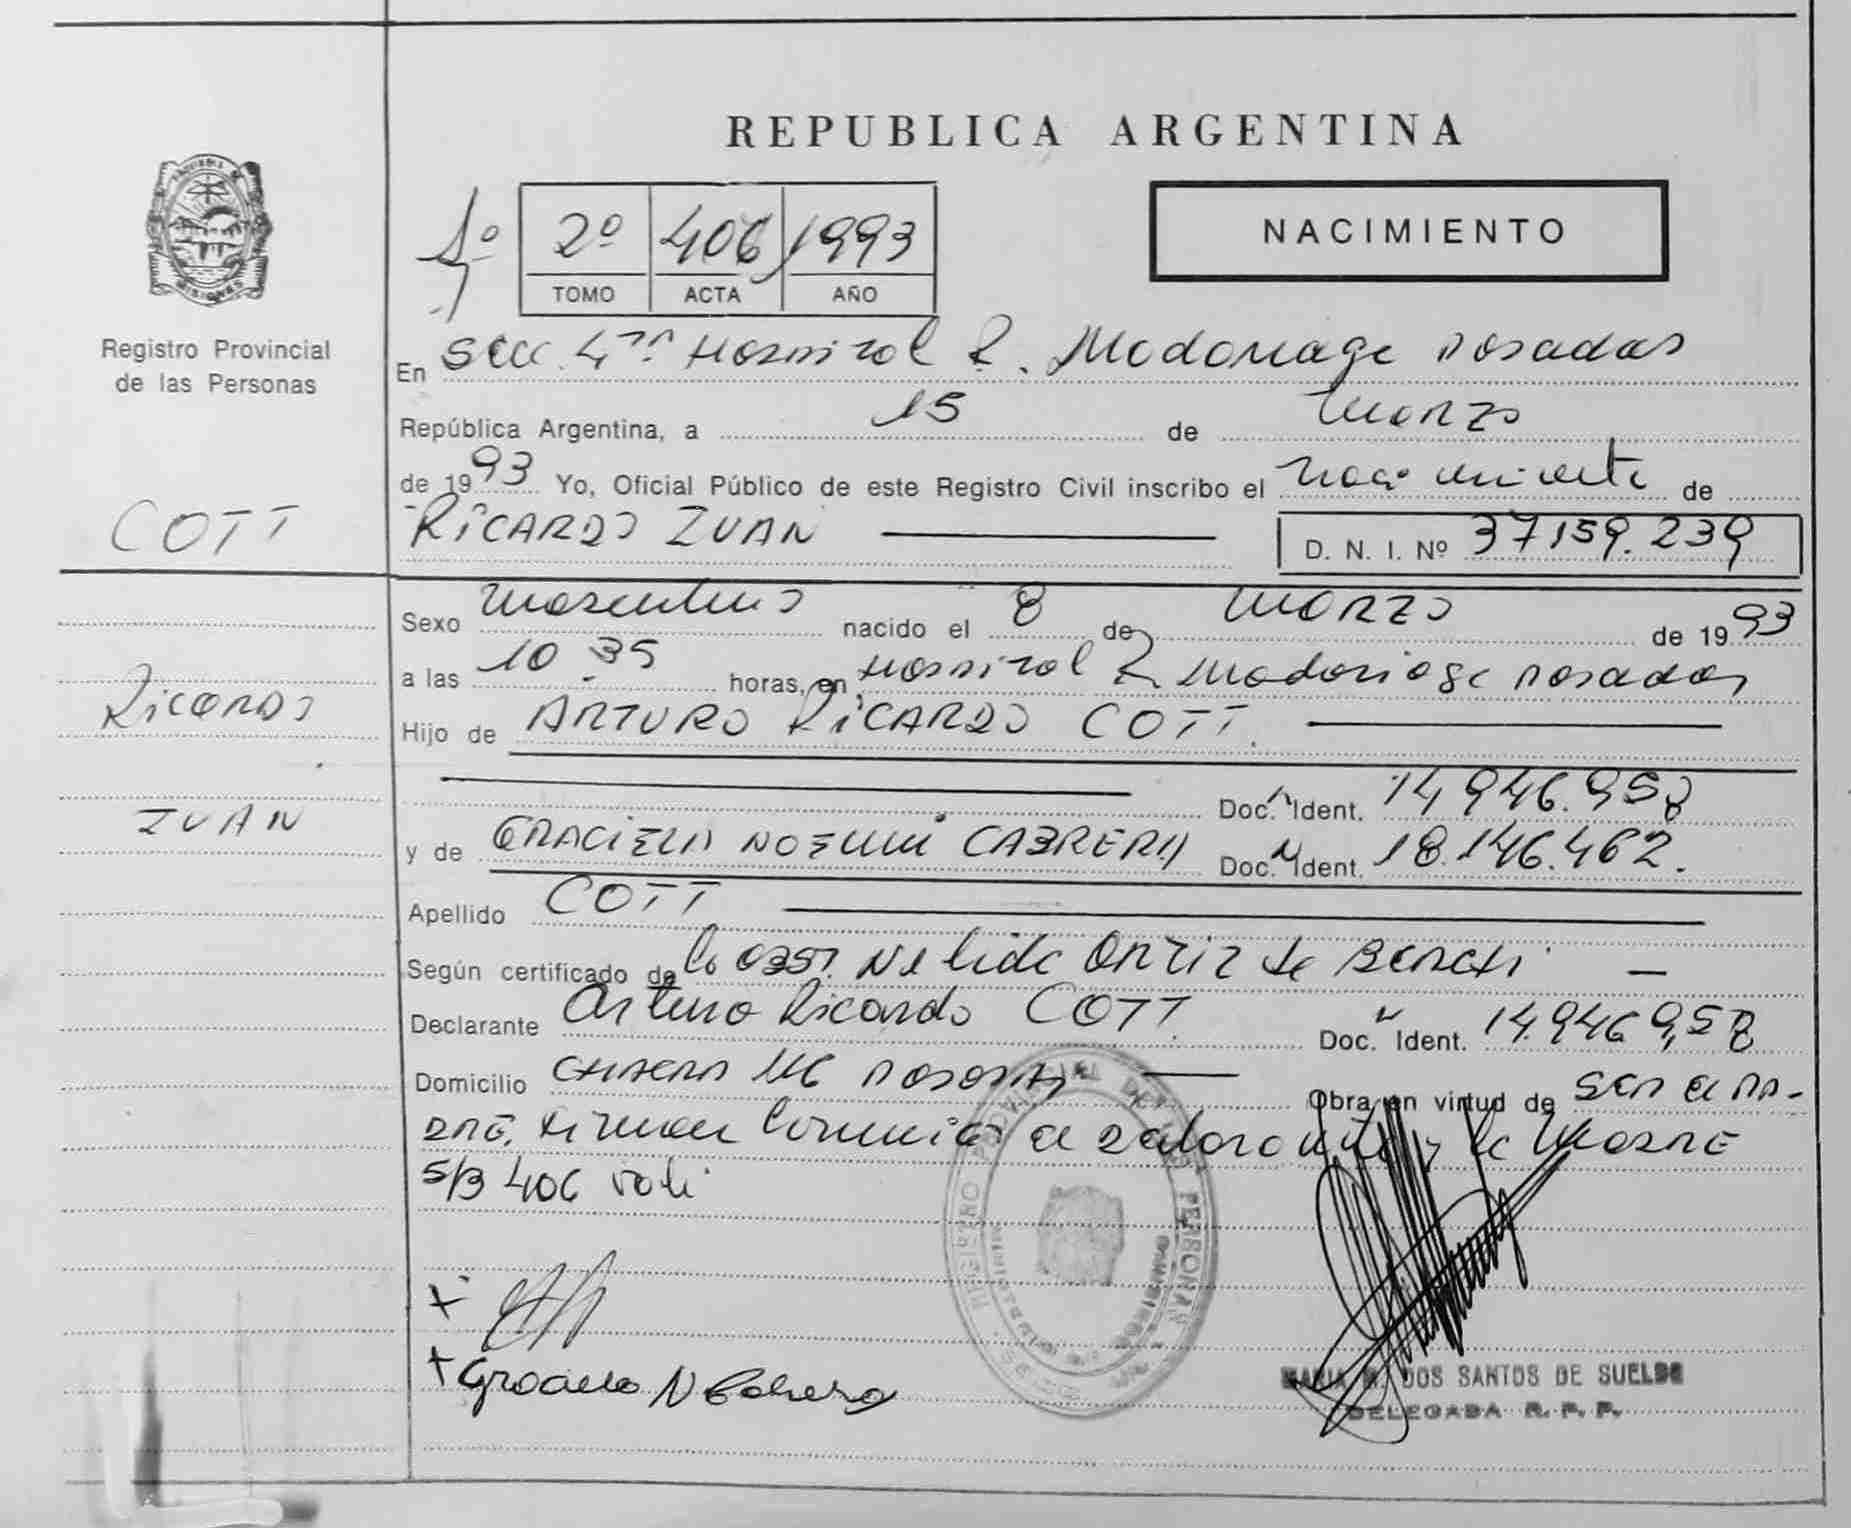 REPUBLICA ARGENTINA
1º
2º 406 1993
TOMO ACTA AÑO
NACIMIENTO
MISIONES
Registro Provincial
de las Personas
COTT
Ricardo
IVAN
En Secc. 4ta Hospital R. Madariaga Posadas
República Argentina, a 15 de Marzo
de 1993 Yo, Oficial Público de este Registro Civil inscribo el nacimiento de
RICARDO IVAN
D. N. I. Nº 37159.239
Sexo masculino nacido el 8 de MARZO de 1993
a las 10.35 horas, en Hospital R Madariaga Posadas
Hijo de ARTURO RICARDO COTT.
Doc. Ident. 14,946.958
y de GRACIELA NOEMI CABRERA Doc. Ident. 18.146.462.
Apellido COTT
Según certificado de la Obst. Nelida Ortiz de
Declarante Arturo Ricardo COTT Doc. Ident. 14.946.958
Domicilio 116 Posadas Obra en virtud de ser el pa-
dre. Firman el declarante y la Madre
S/B 406 vale
REGISTRO PROVINCIAL DE LAS PERSONAS
MISIONES
+
+ Graciela N Cabrera
MARIA M. DOS SANTOS DE SUELDO
DELEGADA R. P. P.